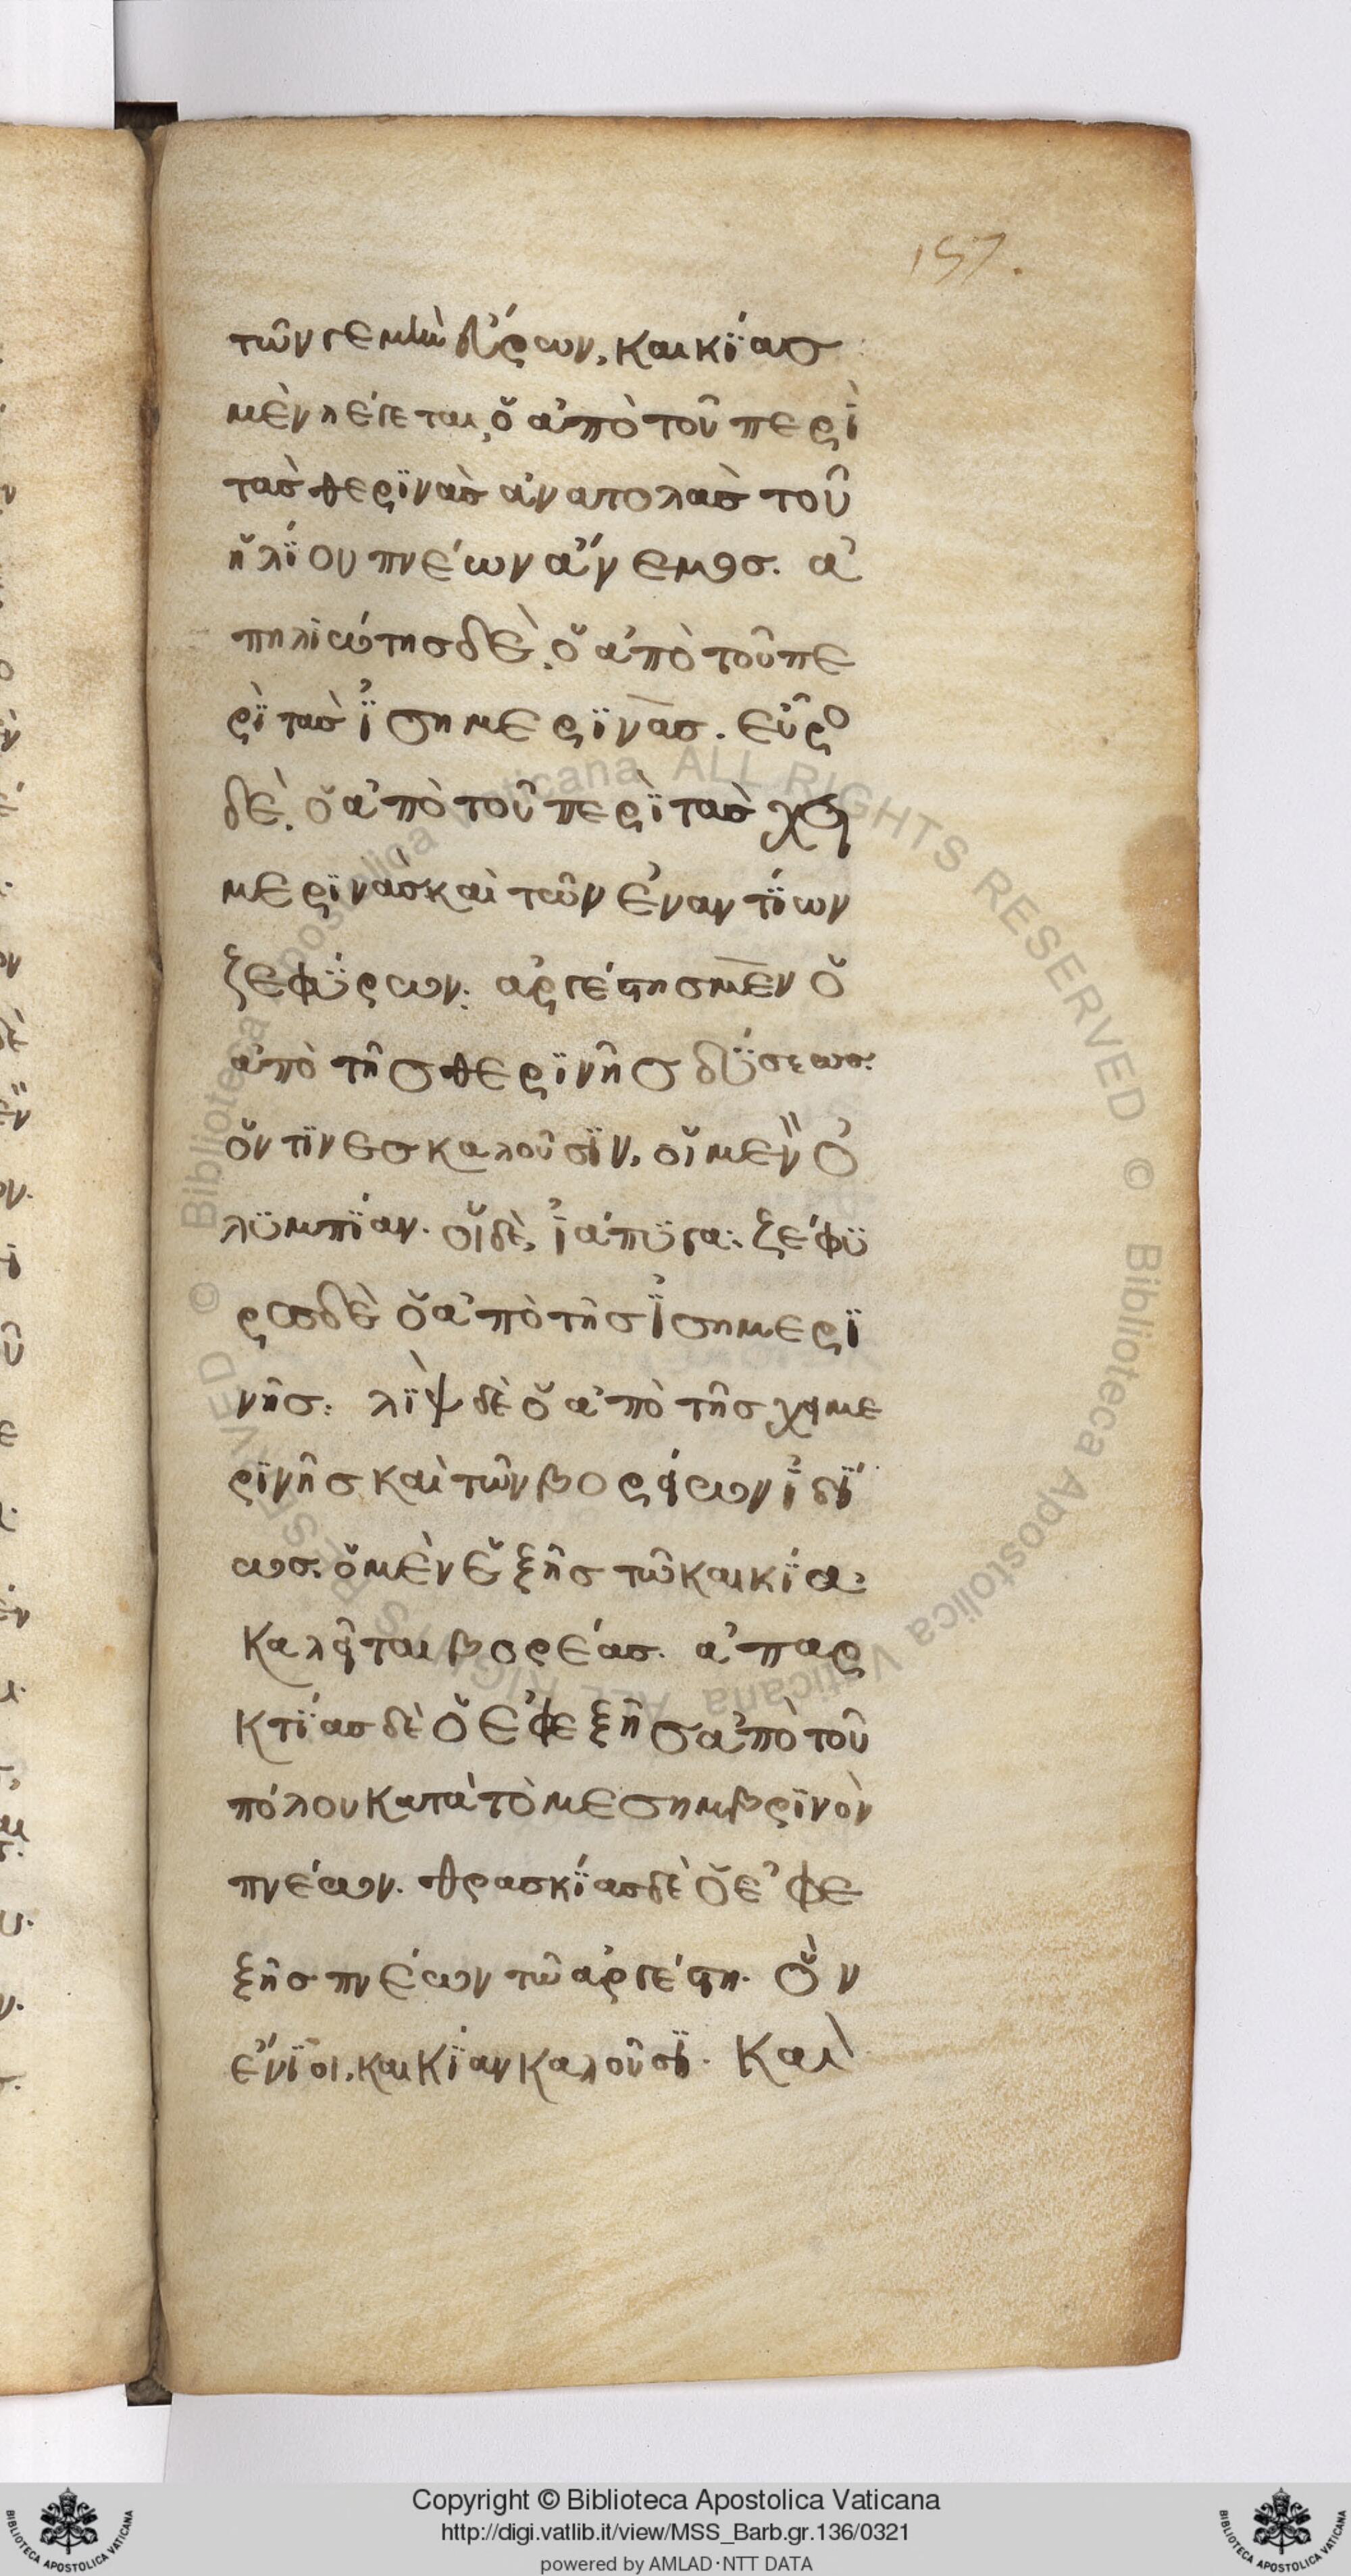 157.
τῶν γε μὴν ἔυρων, καικΐας
μὲν λέγεται, ὁ ἀπὸ τοῦ περὶ
τὰσ θερϊνὰσ ἀνατολὰσ τοῦ
ἡλΐου πνέων ἄνεμοσ. ἀ
πηλιώτησ δὲ, ὁ ἀπὸ τοῦ πε
ρῒ τὰσ ἰσημερϊνάσ. εὖρο
δὲ, ὁ ἀπὸ τοῦ περῒ τὰσ χει
μερϊνάσ καὶ τῶν ἐναντΐων
ζεφΰρων. ἀργέστησ μὲν ὁ
ἀπὸ τῆσ θερϊνῆσ δΰσεωσ.
ὅν τϊνεσ καλοῦσϊν, οἱ μὲν ὀ
λϋμπΐαν. οἱ δὲ, ἰάπϋγα. ζέφϋ
ροσ δὲ ὁ ἀπὸ τῆσ ἰσημερϊ
νῆσ. λῒψ δὲ ὁ ἀπὸ τῆσ χειμε
ρϊνῆσ καὶ τῶν βορείων ἰδΐ
ωσ. ὁ μὲν ἑξῆσ τῶ καικΐα.
καλεῖται βορέασ. ἀπαρ
κτΐασ δὲ ὁ ἐφεξῆσ ἀπὸ τοῦ
πόλου κατὰ τὸ μεσημβρϊνὸν
πνέων. θρασκΐασ δὲ ὁ ἐφε
ξῆσ πνέων τῶ ἀργέστη. ὃν
ἔνϊοι, καικΐαν καλοῦσϊ. Καὶ
Copyright © Biblioteca Apostolica Vaticana
http://digi.vatlib.it/view/MSS_Barb.gr.136/0321
powered by AMLAD·NTT DATA
© Biblioteca Apostolica Vaticana ALL RIGHTS RESERVED
© Biblioteca Apostolica Vaticana ALL RIGHTS RESERVED
BIBLIOTECA APOSTOLICA VATICANA
BIBLIOTECA APOSTOLICA VATICANA